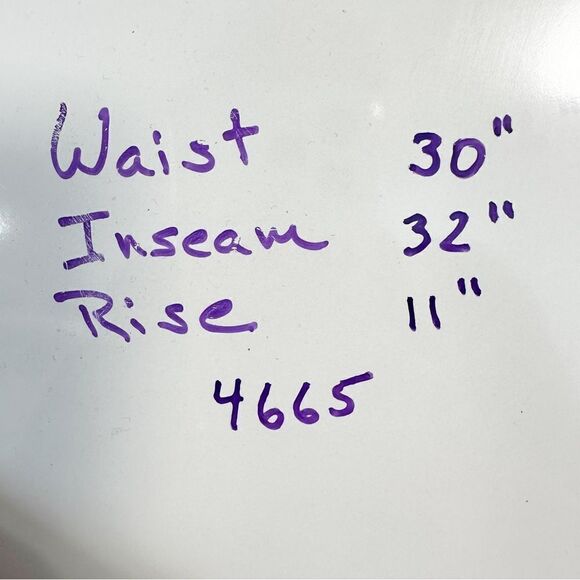 Waist 30"
Inseam 32"
Rise 11"
4665